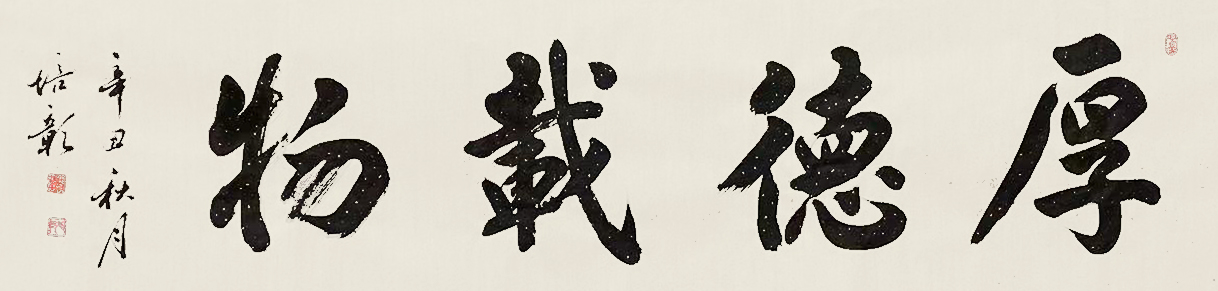 厚德載物
辛丑秋月
培彰